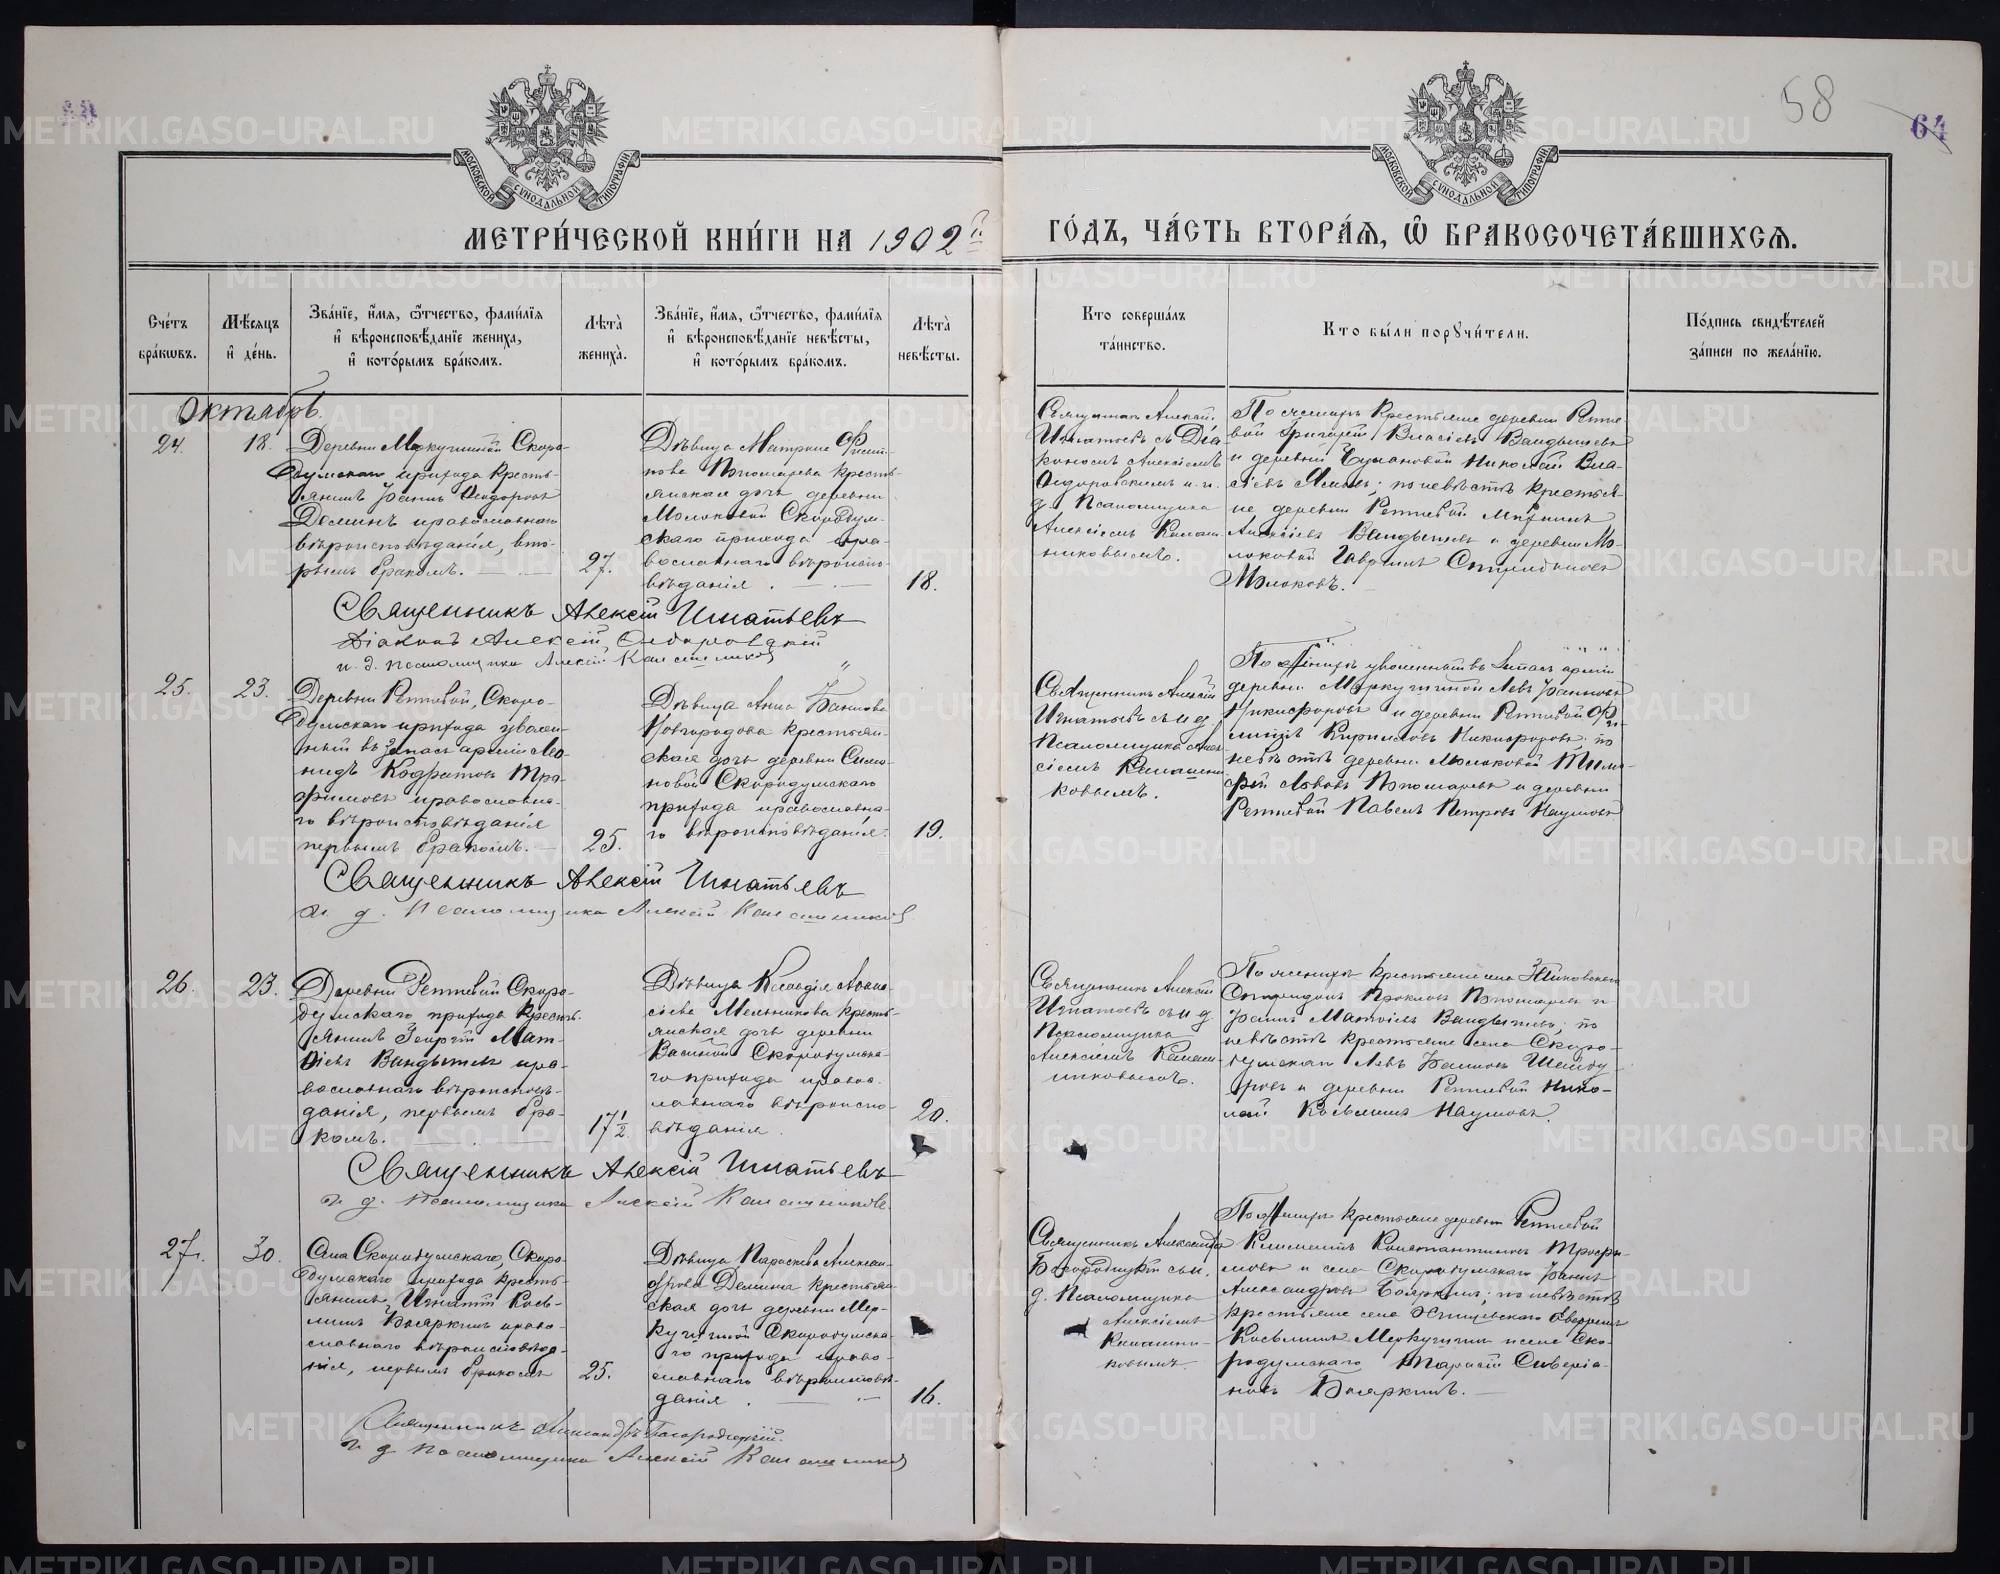 58
64
МОСКОВСКОЙ СѴНОДАЛЬНОЙ ТИПОГРАФІИ
МОСКОВСКОЙ СѴНОДАЛЬНОЙ ТИПОГРАФІИ
МЕТРИ́ЧЕСКОЙ КНИ́ГИ НА 1902 г.
ГО́ДЪ, ЧА́СТЬ ВТОРА́Ѧ, Ѡ БРАКОСОЧЕТА́ВШИХСѦ.
Сче́тъ бра́кѡвъ.
Мѣ́сѧцъ и҆ де́нь.
Зва́нїе, и҆́мѧ, ѻ҆́тчество, фами́лїѧ
и҆ вѣроисповѣ́данїе жениха̀,
и҆ кото́рымъ бра́комъ.
Лѣта̀ жениха̀.
Зва́нїе, и҆́мѧ, ѻ҆́тчество, фами́лїѧ
и҆ вѣроисповѣ́данїе невѣ́сты,
и҆ кото́рымъ бра́комъ.
Лѣта̀ невѣ́сты.
Кто соверша́лъ
та́инство.
Кто бы́ли порꙋчи́тели.
По́дпись свидѣ́телей
за́писи по жела́нїю.
Октябрь.
24.
18.
Деревни Меркушиной Скоро-
думскаго прихода кресть-
янинъ Іоаннъ Ѳедоровъ
Деминъ православнаго
вѣроисповѣданія, вто-
рымъ бракомъ.
27.
Дѣвица Матрона
Пономарева кресть-
янская дочь деревни
Молоковой Скородум-
скаго прихода пра-
вославнаго вѣроиспо-
вѣданія.
18.
Священникъ Алексій
Игнатьевъ съ Діа-
кономъ Алексіемъ
и.
д. Псаломщика
Алексіемъ
По женихѣ крестьяне деревни Ретне-
вой Григорій Власіевъ Вандышевъ
и деревни Николай Вла-
сіевъ; по невѣстѣ крестья-
не деревни Ретневой
Алексіевъ Вандышевъ и деревни Мо-
локовой Гавріилъ Спиридоновъ
Молоковъ.
Священникъ Алексій Игнатьевъ
Діаконъ Алексій
и. д. псаломщика Алексій
25.
23.
Деревни Ретневой, Скоро-
думскаго прихода уволен-
ный въ запасъ арміи Лео-
нидъ Кодратовъ Тро-
фимовъ православна-
го вѣроисповѣданія
первымъ бракомъ.
25.
Дѣвица Анна Іоаннова
Новгородова крестьян-
ская дочь деревни Симо-
новой Скородумскаго
прихода православна-
го вѣроисповѣданія.
19.
Священникъ Алексій
Игнатьевъ съ и. д.
Псаломщика Алек-
сіемъ
По женихѣ уволенный въ запасъ арміи
деревни Меркушиной Левъ Іоанновъ
Никифоровъ и деревни Ретневой Фи-
липпъ Кирилловъ Никифоровъ; по
невѣстѣ деревни Молоковой Тимо-
фей Львовъ Пономаревъ и деревни
Ретневой Павелъ Петровъ Наумовъ
Священникъ Алексій Игнатьевъ
и. д. Псаломщика Алексій
26.
23.
Деревни Ретневой Скоро-
думскаго прихода кресть-
янинъ Георгій Мат-
ѳіевъ Вандышевъ пра-
вославнаго вѣроисповѣ-
данія, первымъ бра-
комъ.
17½
Дѣвица Клавдія Аѳана-
сіева Мельникова кресть-
янская дочь деревни
Васиной Скородумска-
го прихода правос-
лавнаго вѣроиспо-
вѣданія.
20.
Священникъ Алексій
Игнатьевъ съ и. д.
Псаломщика
Алексіемъ
По женихѣ крестьяне села
Спиридонъ Прокловъ Пономаревъ и
Іоаннъ Матѳіевъ Вандышевъ; по
невѣстѣ крестьяне села Скоро-
думскаго Левъ Іоанновъ
и деревни Ретневой Нико-
лай Косьминъ Наумовъ.
Священникъ Алексій Игнатьевъ
и. д. Псаломщика Алексій
27.
30.
Села Скородумскаго, Скоро-
думскаго прихода кресть-
янинъ Игнатій Кось-
минъ Бояркинъ право-
славнаго вѣроисповѣда-
нія, первымъ бракомъ
25.
Дѣвица Параскева
Демина крестьян-
ская дочь деревни Мер-
кушиной Скородумска-
го прихода право-
славнаго вѣроисповѣ-
данія.
16.
Священникъ Александръ
Богородицкій съ и.
д. Псаломщика
Алексіемъ
По женихѣ крестьяне деревни Ретневой
Климентъ Константиновъ Трофи-
мовъ и села Скородумскаго Іоаннъ
Александровъ Бояркинъ; по невѣстѣ
крестьяне села
Косьминъ Меркушинъ и села Ско-
родумскаго Тарасій Северіа-
новъ Бояркинъ.
Священникъ Александръ Богородицкій.
и. д. псаломщика Алексій
METRIKI.GASO-URAL.RU